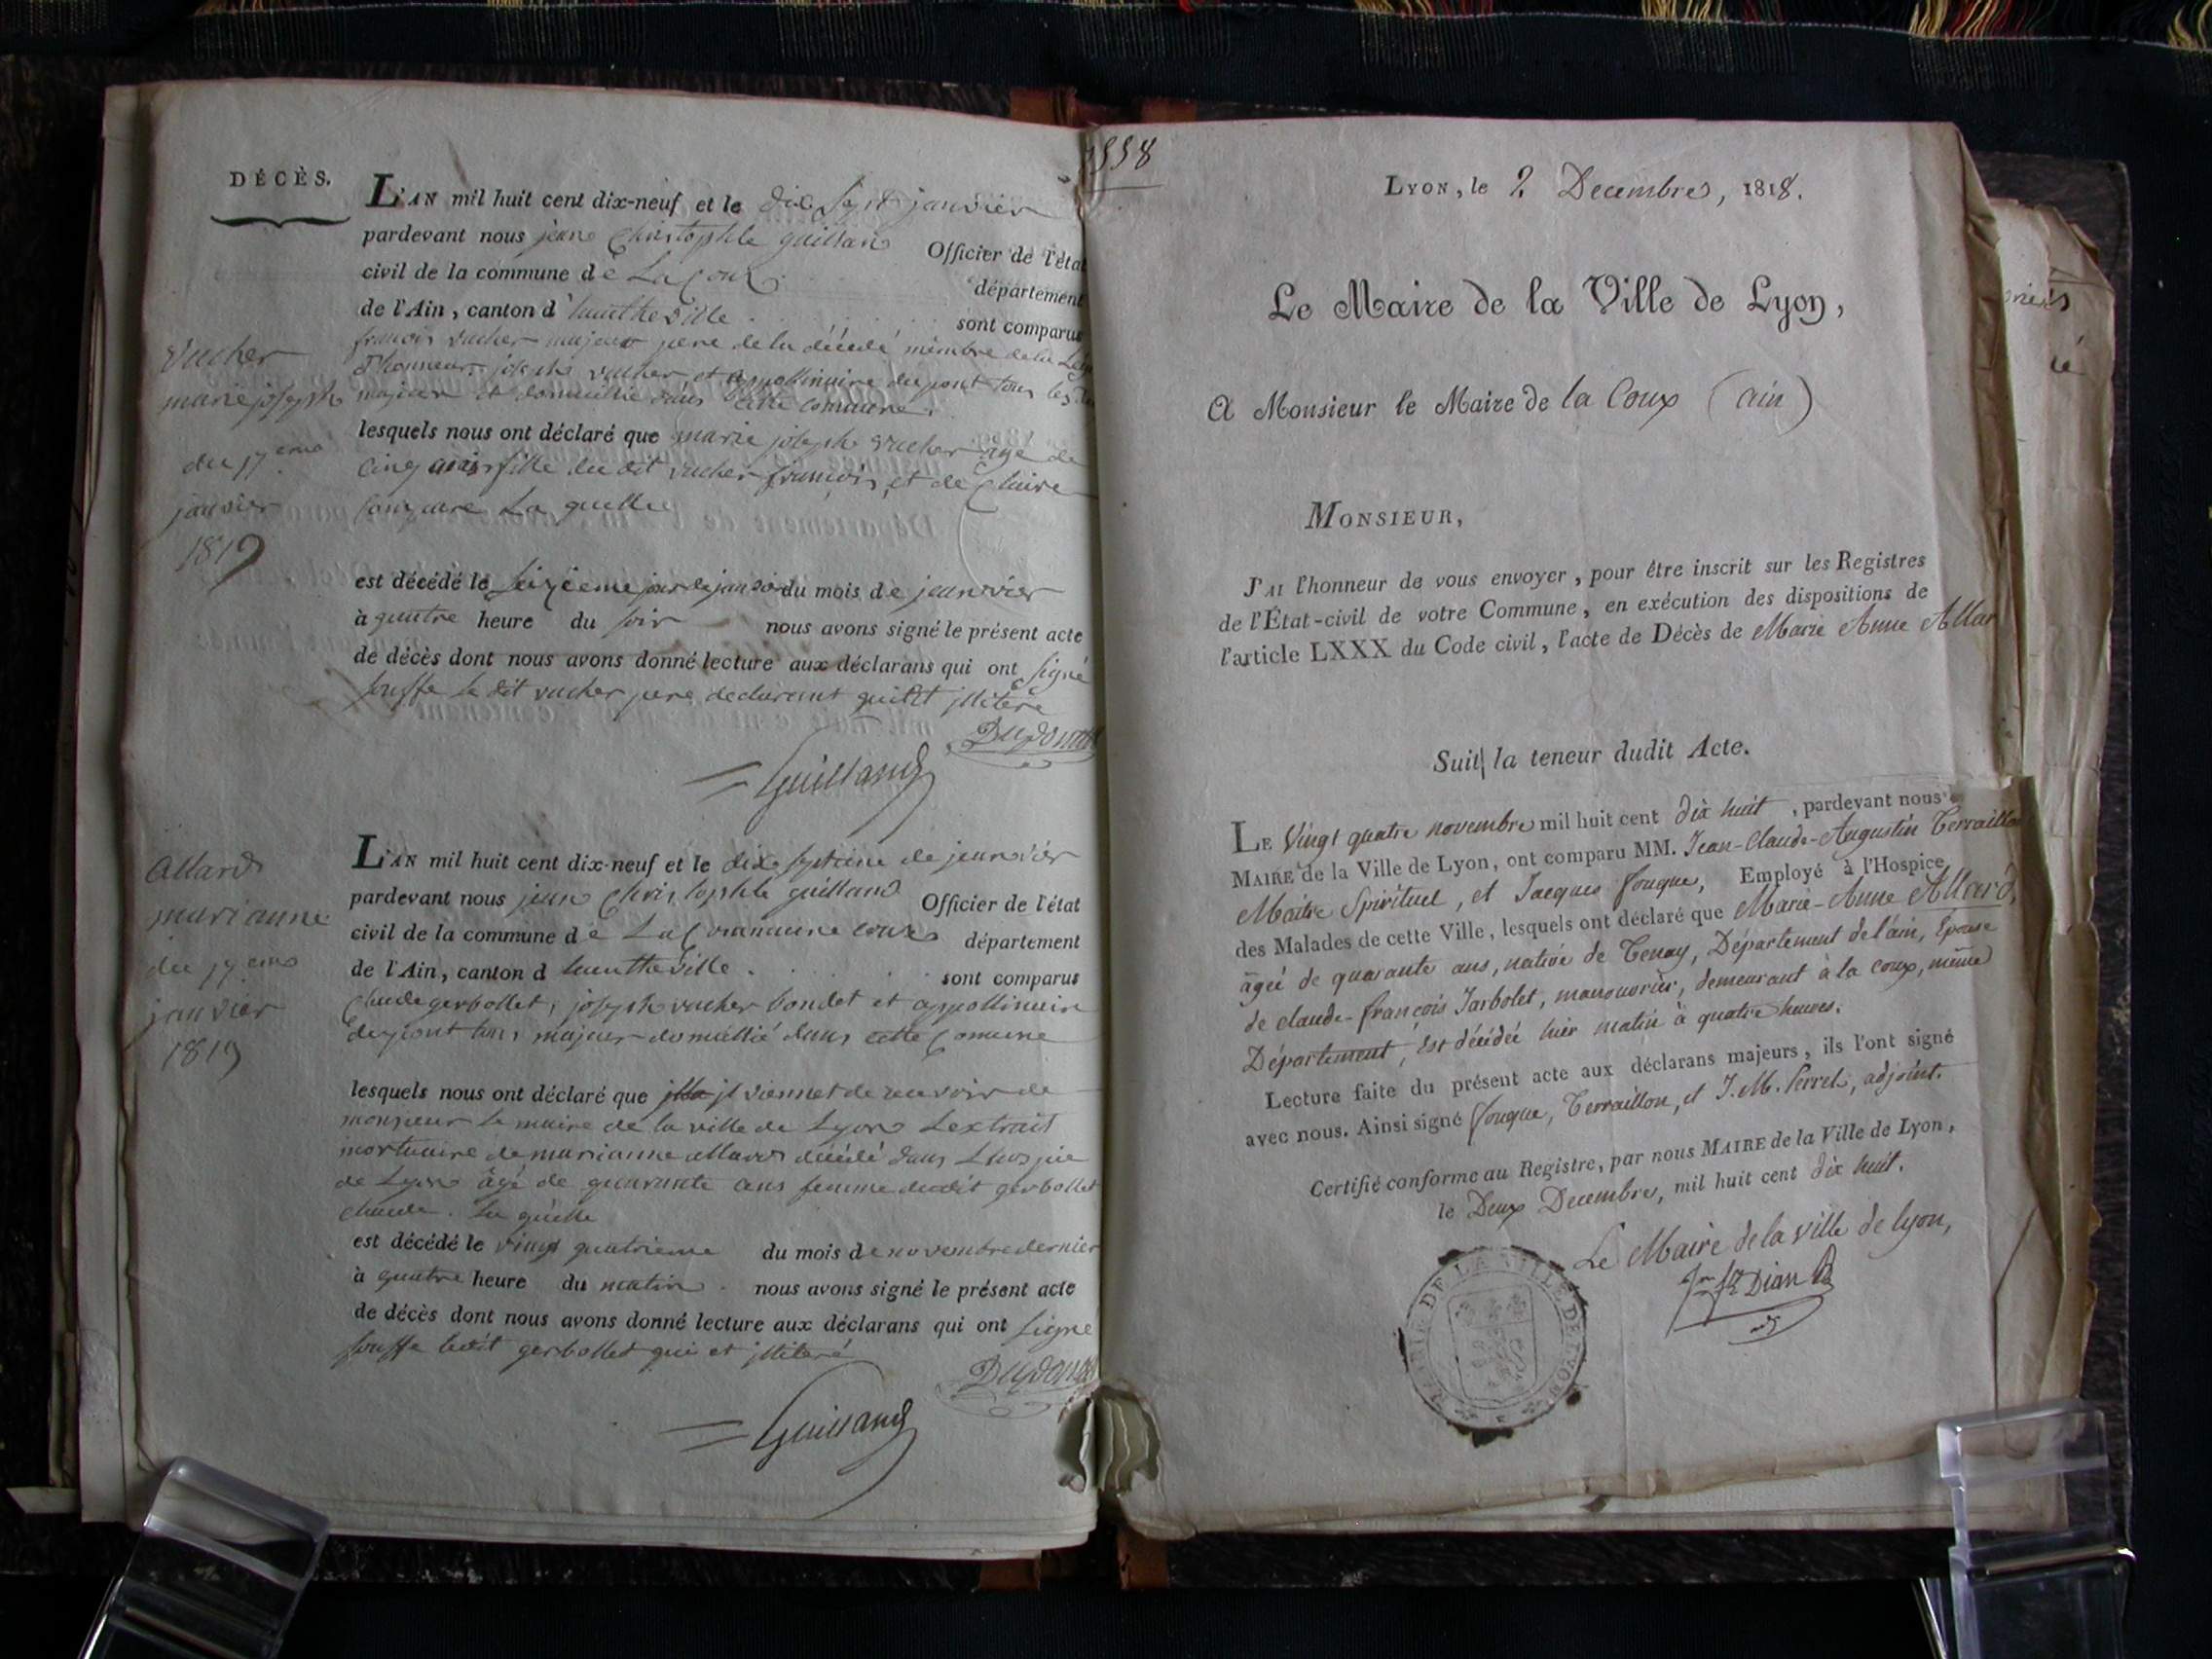 DÉCÈS.
Vucher
marie joseph
du 17eme
janvier
1819
L'AN mil huit cent dix-neuf et le dix sept janvier
pardevant nous jean Christophle guilland Officier de l'état
civil de la commune de La Coux département
de l'Ain, canton d'hautheville sont comparus
françois vucher majeur pere de la décédé membre de la
d'honneur joseph vucher et appollinaire dupont tous les
majeur et domicillié dans cette comune.
lesquels nous ont déclaré que marie joseph vucher age de
cinq fille du dit vucher françois, et de Claire
La quelle
est décédé le seizieme jour de janvier du mois de jeanvier
à quatre heure du soir nous avons signé le présent acte
de décès dont nous avons donné lecture aux déclarans qui ont signé
souffe le dit vucher pere declarant qui et illitere
Guilland
allard
marianne
du 17eme
janvier
1819
L'AN mil huit cent dix-neuf et le dix septieme de jeanvier
pardevant nous jean Christophle guilland Officier de l'état
civil de la commune de La Coux département
de l'Ain, canton d hautheville. sont comparus
Claude gerbollet, joseph vucher boudet et appollinaire
dupont tous majeur domicillié dans cette Comune
lesquels nous ont déclaré que il viennet de recevoir de
monsieur le maire de la ville de Lyon Lextrait
mortuaire de marianne allard décédé dans Lhospice
de Lyon âgé de quarante ans femme dudit gerbollet
claude. La quelle
est décédé le vingt quatrieme du mois de novembre dernier
à quatre heure du matin. nous avons signé le présent acte
de décès dont nous avons donné lecture aux déclarans qui ont signé
souffe ledit gerbollet qui et illiteré
Guilland
LYON, le 2 Decembre, 1818.
Le Maire de la Ville de Lyon,
A Monsieur le Maire de la Coux (ain)
MONSIEUR,
J'AI l'honneur de vous envoyer, pour être inscrit sur les Registres
de l'État-civil de votre Commune, en exécution des dispositions de
l'article LXXX du Code civil, l'acte de Décès de Marie Anne Allar
Suit la teneur dudit Acte.
LE Vingt quatre novembre mil huit cent dix huit, pardevant nous
MAIRE de la Ville de Lyon, ont comparu MM. Jean-Claude-Augustin Terraillon
Maitre Spirituel, et Jacques fouque, Employé à l'Hospice
des Malades de cette Ville, lesquels ont déclaré que Marie-Anne Allard,
agée de quarante ans, native de Tenay, Département de l'ain, Epouse
de claude-françois Jarbolet, manouvrier, demeurant à la coux, même
Département, est décédée hier matin à quatre heures.
Lecture faite du présent acte aux déclarans majeurs, ils l'ont signé
avec nous. Ainsi signé fouque, Terraillon, et J. M. Perret, adjoint.
Certifié conforme au Registre, par nous MAIRE de la Ville de Lyon,
le Deux Decembre, mil huit cent dix huit.
Le Maire de la ville de lyon,
MAIRIE DE LA VILLE DE LYON